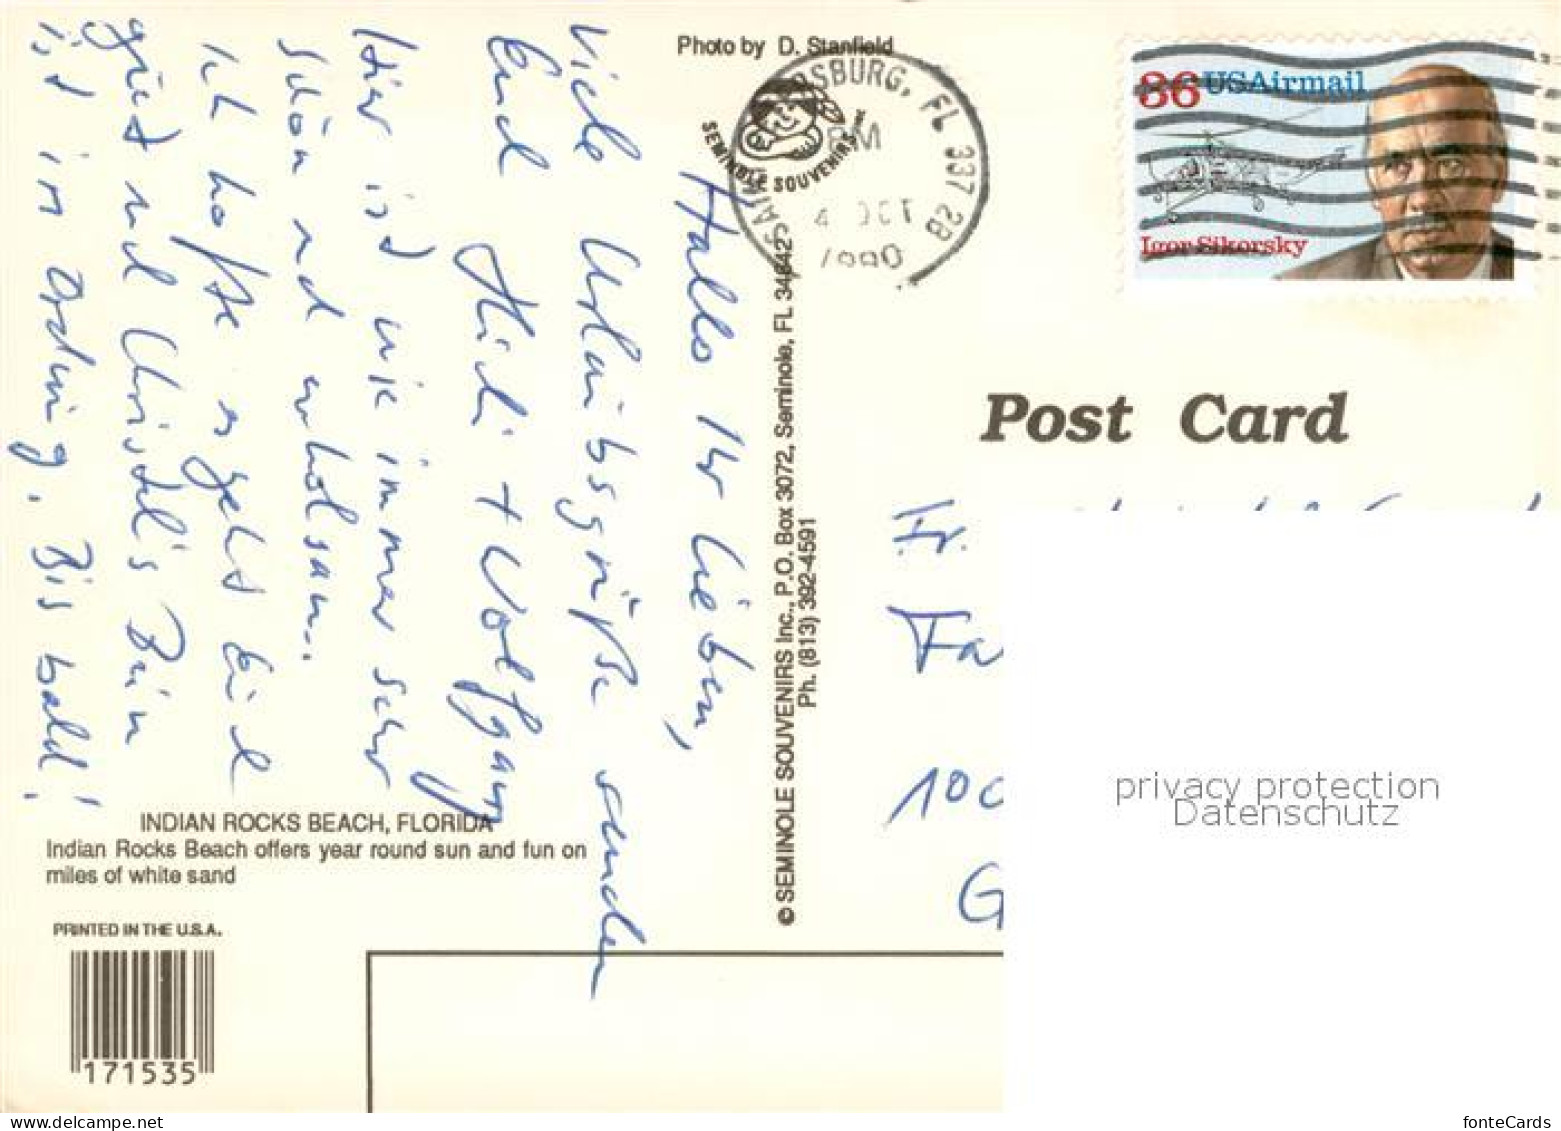 Photo by D. Stanfield
SEMINOLE SOUVENIRS INC
RSBURG, FL 337 2B
PM
1990
86 USAirmail
Igor Sikorsky
Post Card
© SEMINOLE SOUVENIRS Inc., P.O. Box 3072, Seminole, FL 34642
Ph. (813) 392-4591
Hallo Ihr Lieben,
viele Urlaubsgrüße senden
Euch Heidi + Wolfgang
Hier ist wie immer sehr
schön und erholsam.
Ich hoffe es geht Euch
gut und Christel's Bein
ist in Ordnung. Bis bald!
Fr.
Fa
100
G
INDIAN ROCKS BEACH, FLORIDA
Indian Rocks Beach offers year round sun and fun on
miles of white sand
PRINTED IN THE U.S.A.
171535
privacy protection
Datenschutz
www.delcampe.net
fonteCards